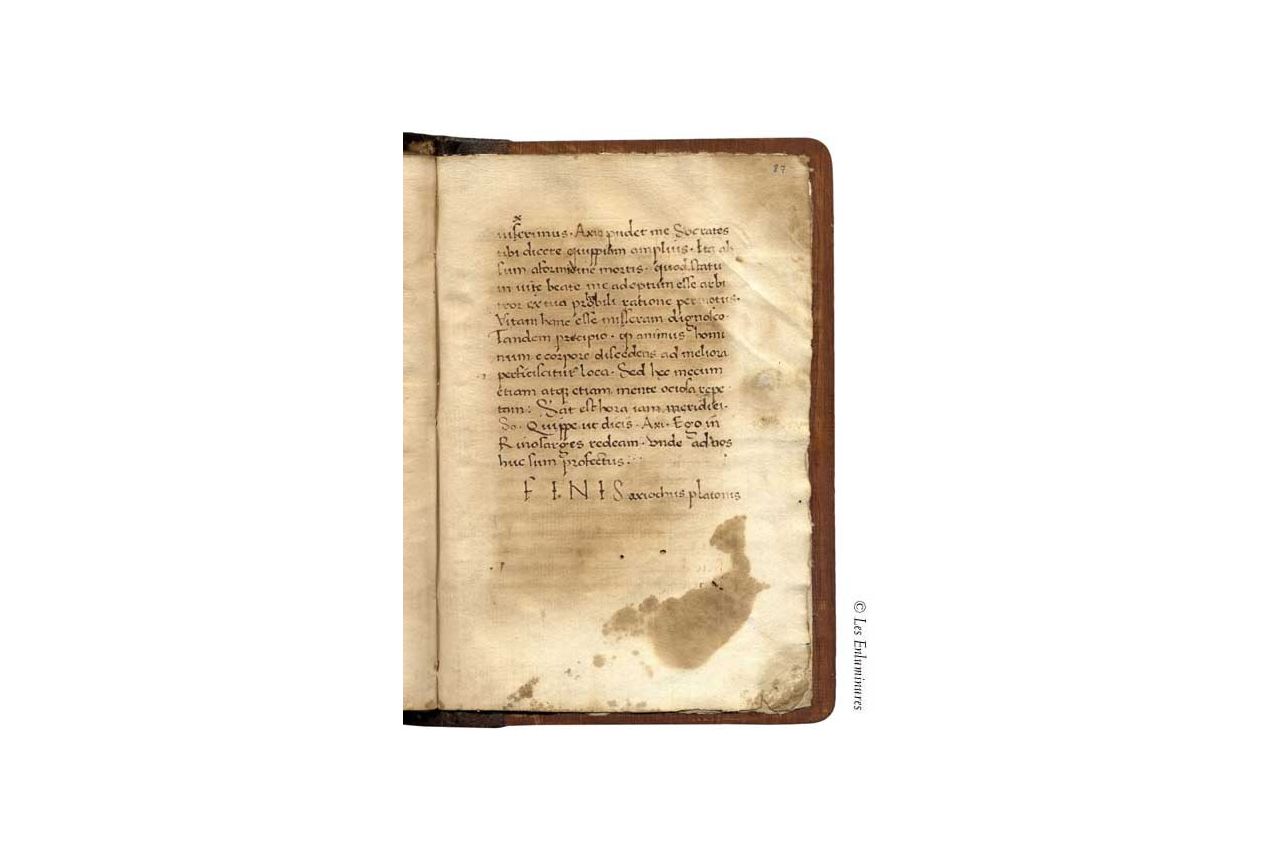 87
Axio pudet me Socrates
tibi dicere quippiam amplius. Ita ab
sum a formidine mortis. quod statu
m vite beate me adeptum esse arbi
tror ex tua probabili ratione permotus.
Vitam hanc esse miseram dignosco.
Tandem precipio. ꝙ animus homi
num e corpore discedens ad meliora
perficiscitur loca. Sed hec mecum
etiam atqꝫ etiam mente ociosa repe
tam: Sat est hora iam meridiei.
So. Quippe ut dicis. Axi. Ego in
Kinosarges redeam. Unde ad nos
huc sum profectus:
FINIS axiochus platonis
© Les Enluminures